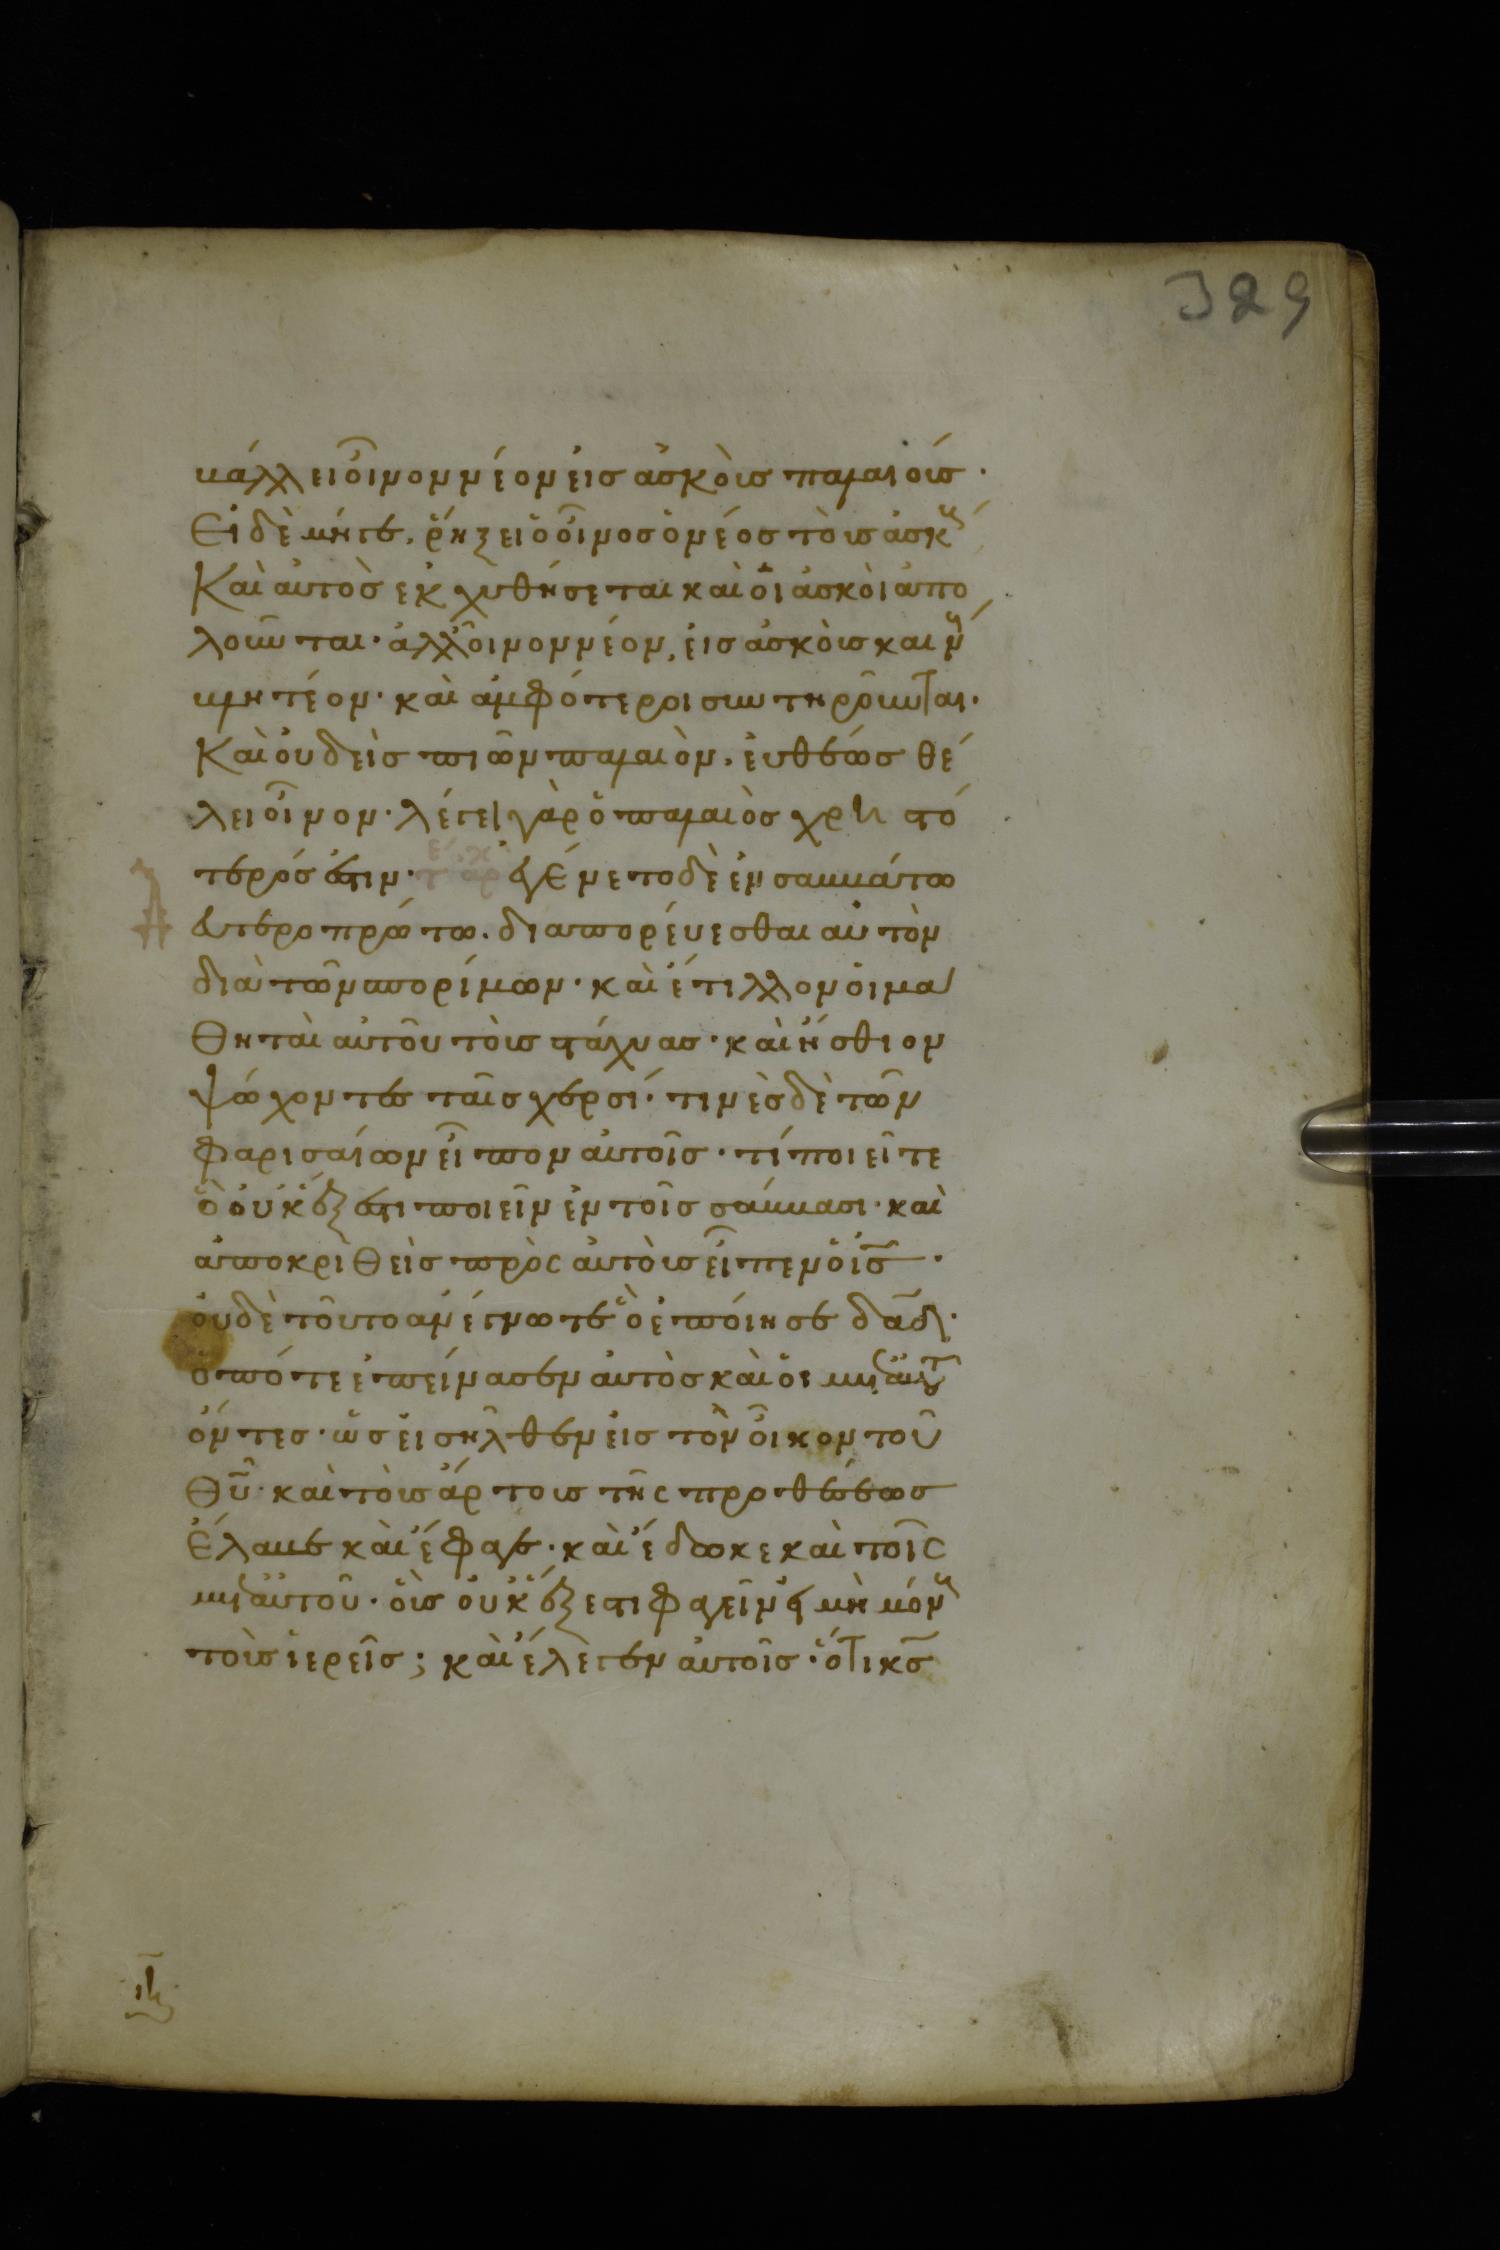 329
βάλλει οἶνον νέον εἰς ἀσκοὺς παλαιούς·
Εἰ δὲ μήγε, ῥήξει ὁ οἶνος ὁ νέος τοὺς ἀσκοὺς
Καὶ αὐτὸς ἐκχυθήσεται καὶ οἱ ἀσκοὶ ἀπο
λοῦνται· ἀλλ' οἶνον νέον, εἰς ἀσκοὺς και νοὺς
βλητέον· καὶ ἀμφότεροι συντηροῦνται·
Καὶ οὐδεὶς πιὼν παλαιὸν, εὐθέως θέ
λει οἶνον· λέγει γὰρ ὁ παλαιὸς χρηστό
τερός ἐστιν· Ἐγένετο δὲ ἐν σαββάτω
δευτεροπρώτω· διαπορεύεσθαι αὐτὸν
διὰ τῶν σπορίμων· καὶ ἔτιλλον οἱ μα
θηταὶ αὐτοῦ τοὺς στάχυας· καὶ ἤσθιον
ψώχοντες ταῖς χερσί· τινὲς δὲ τῶν
Φαρισαίων εἶπον αὐτοῖς· τί ποιεῖτε
ὃ οὐκ ἔξεστι ποιεῖν ἐν τοῖς σάββασι· καὶ
ἀποκριθεὶς πρὸς αὐτοὺς εἶπεν ὁ ις·
οὐδὲ τοῦτο ἀνέγνωτε ὃ ἐποίησε δαδ·
ὁπότε ἐπείνασεν αὐτὸς καὶ οἱ μετ' αὐτοῦ
ὄντες· ὡς εἰσῆλθεν εἰς τὸν οἶκον τοῦ
Θυ· καὶ τοὺς ἄρτους τῆς προθέσεως
Ἔλαβε καὶ ἔφαγε· καὶ ἔδωκε καὶ τοῖς
μετ' αὐτοῦ· οὓς οὐκ ἔξεστι φαγεῖν εἰ μὴ μόνους
τοὺς ἱερεῖς; καὶ ἔλεγεν αὐτοῖς· ὅτι κς